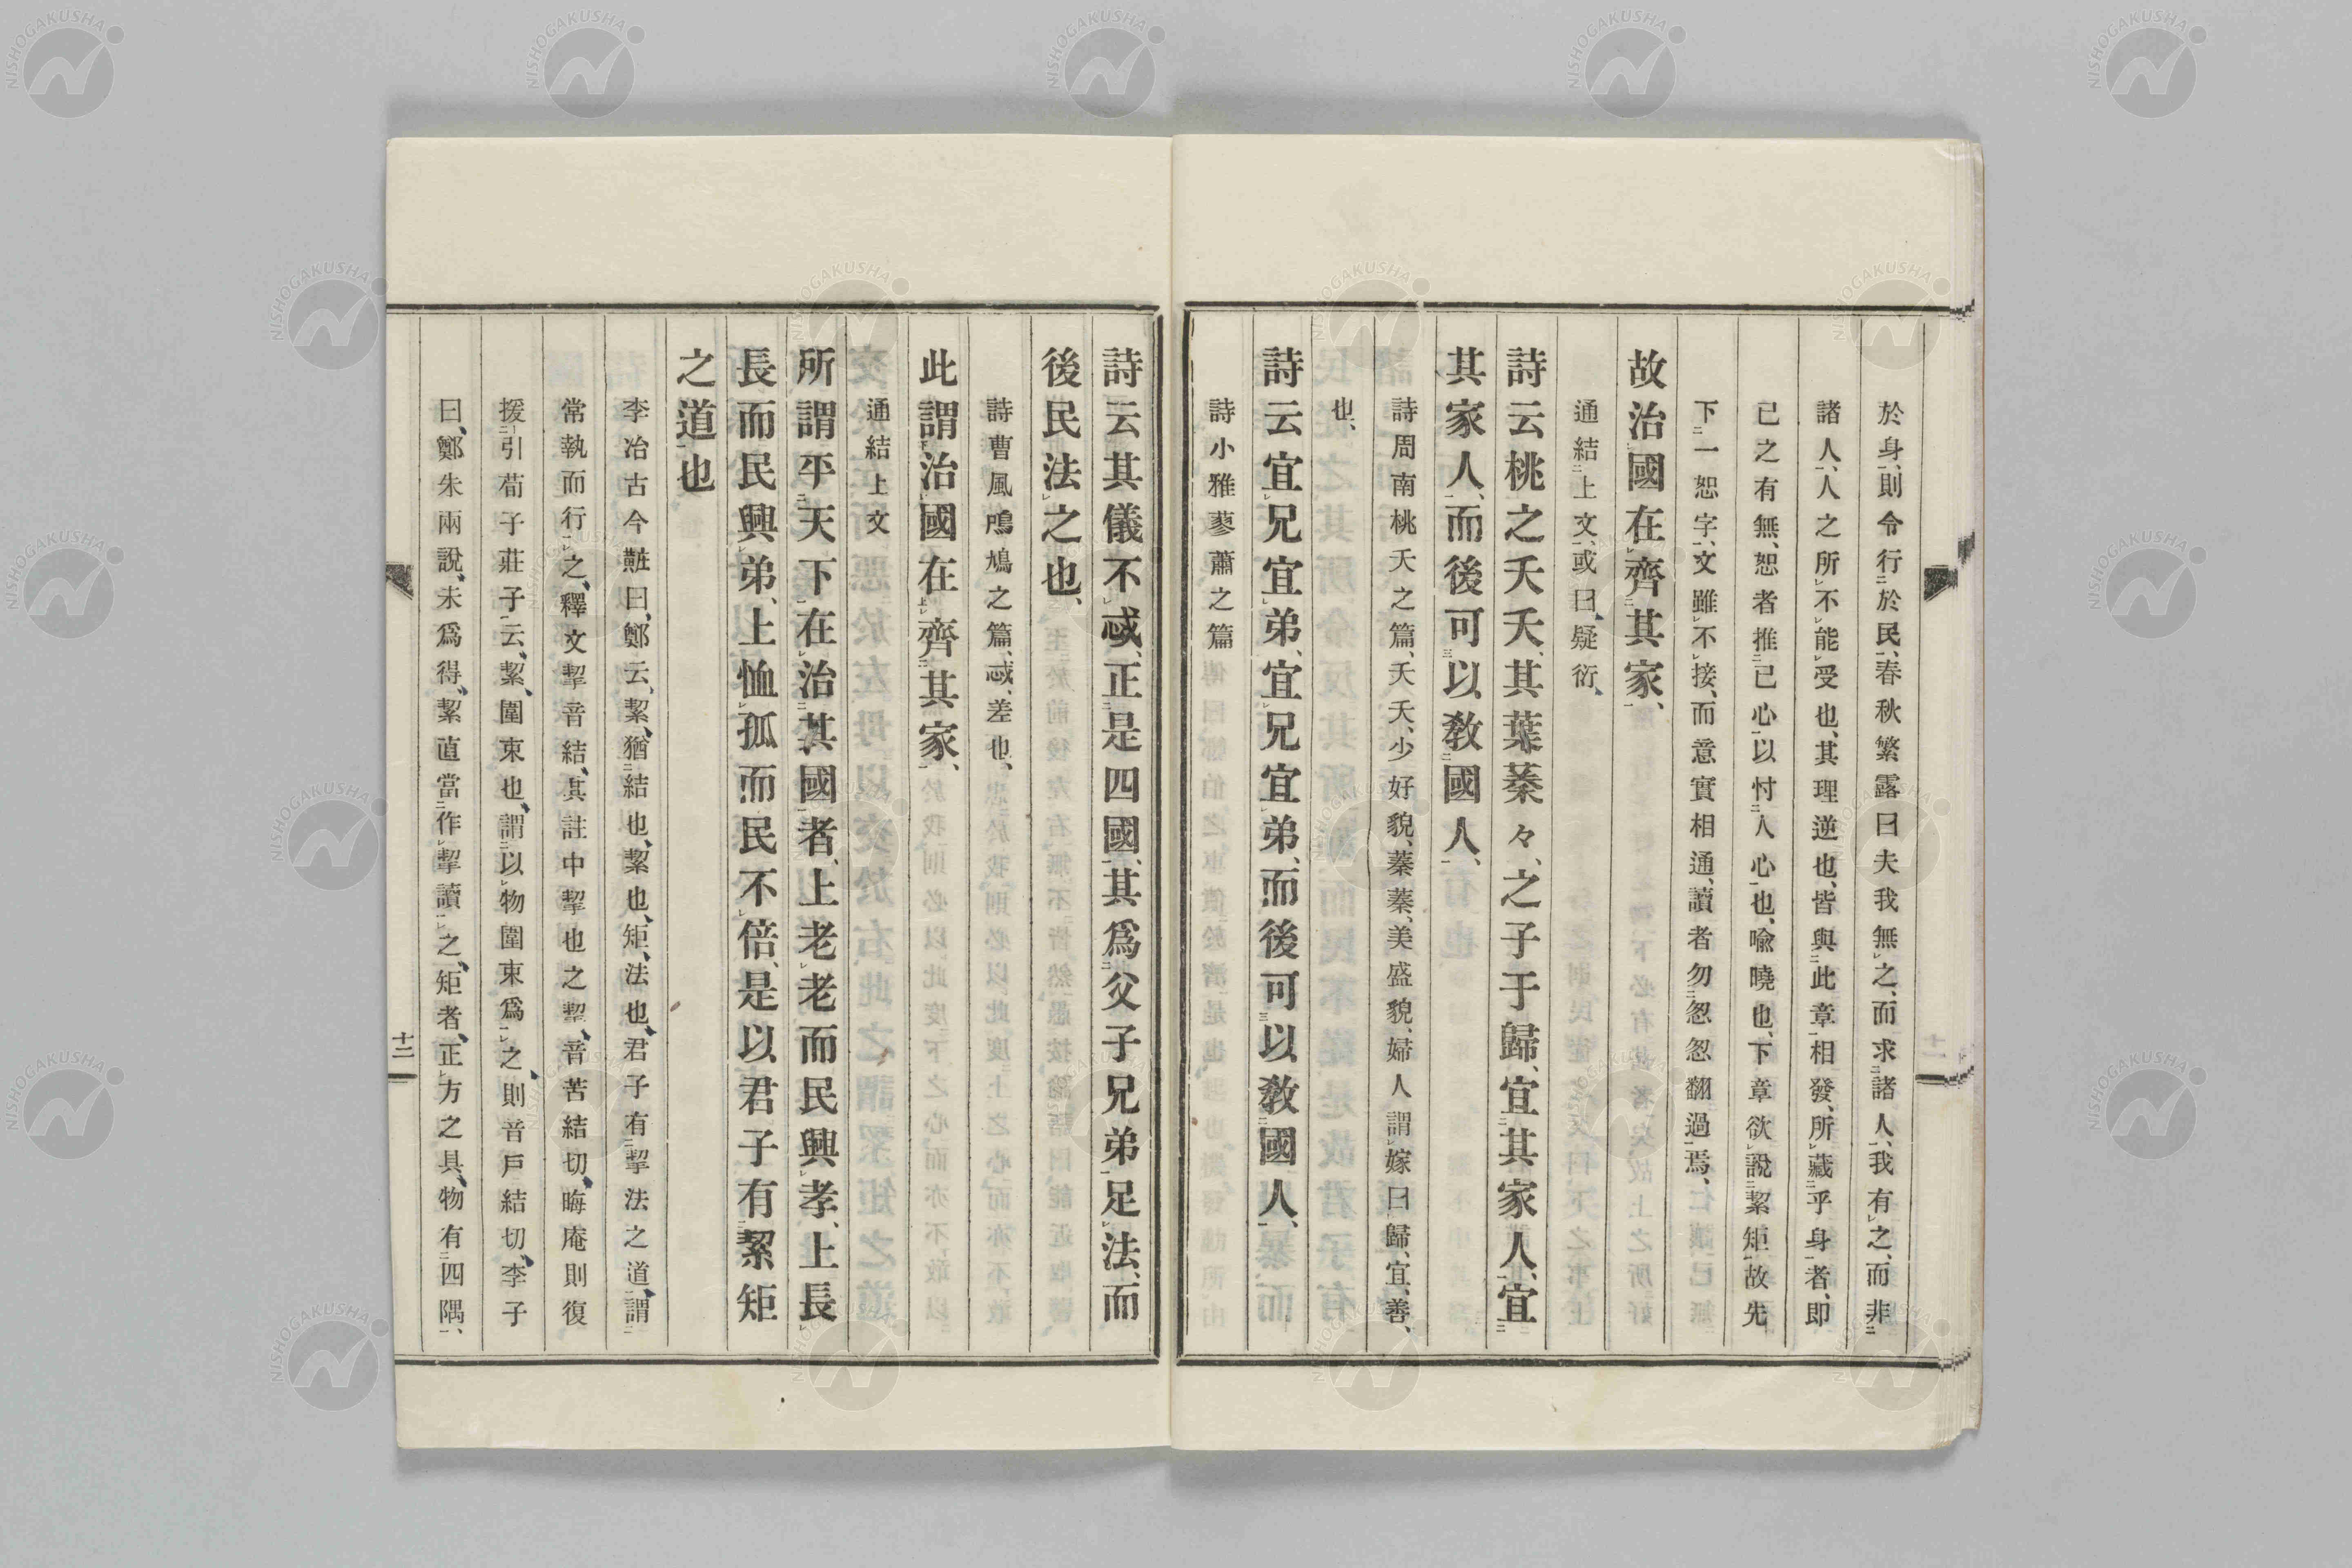 於身、則令行於民、春秋繁露曰夫我無之、而求諸人、我有之、而非
諸人、人之所不能受也、其理逆也、皆與此章相發、所藏乎身者、即
己之有無、恕者推己心以忖人心也、喩曉也、下章欲説絜矩故先
下一恕字、文雖不接、而意實相通、讀者勿怱怱翻過焉、
故治國在齊其家、
通結上文、或曰、疑衍、
詩云桃之夭夭、其葉蓁々、之子于歸、宜其家人、宜
其家人、而後可以敎國人、
詩周南桃夭之篇、夭夭、少好貌、蓁蓁、美盛貌、婦人謂嫁曰歸、宜、善、
也、
詩云宜兄宜弟、宜兄宜弟、而後可以敎國人、
詩小雅蓼蕭之篇
詩云其儀不忒、正是四國、其爲父子兄弟足法、而
後民法之也、
詩曹風鳲鳩之篇、忒、差也、
此謂治國在齊其家、
通結上文
所謂平天下在治其國者、上老老而民興孝、上長
長而民興弟、上恤孤而民不倍、是以君子有絜矩
之道也
李冶古今黈曰、鄭云、絜、猶結也、絜也、矩、法也、君子有挈法之道、謂
常執而行之、釋文挈音結、其註中挈也之挈、音苦結切、晦庵則復
援引荀子莊子云、絜、圍束也、謂以物圍束爲之、則音戸結切、李子
曰、鄭朱兩說、未爲得、絜直當作挈讀之、矩者、正方之具、物有四隅、
十二